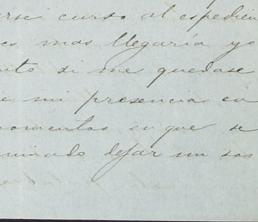 arse curso al espedien
es mas llegaría yo
nto si me quedase
e mi presencia en
momentos en que se
minado dejar un sos